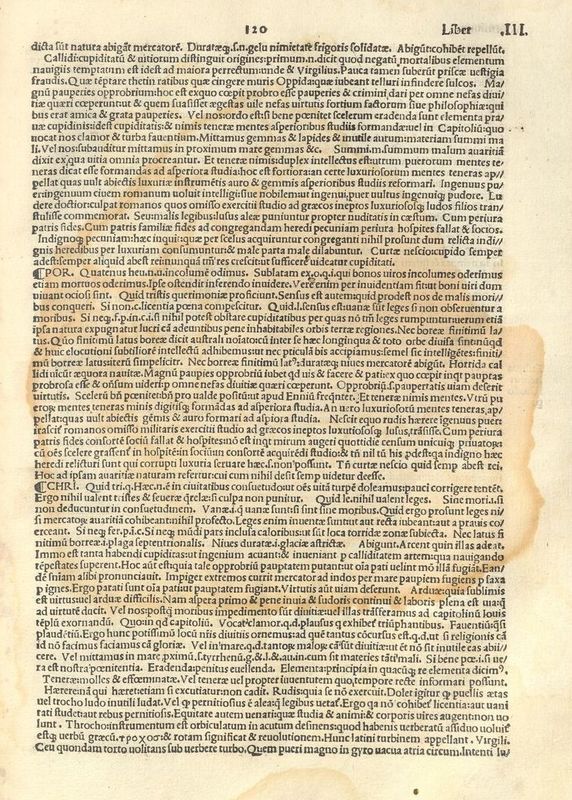 120
Liber .III.
dicta sũt natura abigãt mercatorẽ. Duratæq̃.s.n.gelu nimietate frigoris solidatæ. Abigũt:cohibẽt repellũt.
Callidi:cupiditatũ & uitiorum distinguit origines:primum.n.dicit quod negatũ mortalibus elementum
nauigiis temptatum est:idest ad maiora perrectum:unde & Virgilius.Pauca tamen suberũt priscæ uestigia
fraudis. Quæ tẽptare thetin ratibus quæ cingere muris Oppida:quæ iubeant telluri infindere sulcos. Ma-
gnũ pauperies opprobrium:hoc est ex quo cœpit probro esse pauperies & crimini:dari per omne nefas diui-
tiæ quæri cœperunt:ut & quem suasisset ægestas uile nefas uirtutis fortium factorum siue philosophiæ:qui
bus erat amica & grata pauperies. Vel nos:ordo est:si bene pœnitet scelerum eradenda sunt elementa pra/
uæ cupidinis:idest cupiditatis:& nimis teneræ mentes asperioribus studiis formandæ:uel in Capitoliũ:quo
uocat nos clamor & turba fauentium.Mittamus gemmas & lapides & inutile aurum:materiam summi ma
li.Vel nos:subauditur mittamus in proximum mare gemmas &c. Summi.n.summum malum auaritiã
dixit ex qua uitia omnia procreantur. Et teneræ nimis:duplex intellectus est:utrum puerorum mentes te-
neras dicat esse formandas ad asperiora studia:hoc est fortiora:an certe luxuriosorum mentes teneras ap/
pellat:quas uult abiectis luxuriæ instrumẽtis auro & gemmis asperioribus studiis reformari. Ingenuus pu
er:ingenuum ciuem romanum uoluit intelligi:siue nobilem:ut ingenui puer uultus ingenuiq̃ pudore. Lu
dere doctior:culpat romanos quos omisso exercitii studio ad græcos ineptos luxuriososq̃ ludos filios tran/
stulisse commemorat. Seu malis legibus:lusus aleæ puniuntur propter nuditatis in cæstum. Cum periura
patris fides.Cum patris familiæ fides ad congregandam heredi pecuniam periura hospites fallat & socios.
Indignoq̃ pecuniam:hæc inquit:quæ per scelus acquiruntur congreganti nihil prosunt dum relicta indi/
gnis heredibus per luxuriam consumuntur:& male parta male dilabuntur. Curtæ nescio:cupido semper
adest:semper aliquid abest rei:nunquã tñ res crescit:ut sufficere uideatur cupiditati.
¶POR. Quatenus heu.n.u.incolumẽ odimus. Sublatam ex.o.q.i.qui bonos uiros incolumes oderimus
etiam mortuos oderimus.Ipse ostendit inferendo inuidere.Verũ enim per inuidentiam fit:ut boni uiri dum
uiuant ociosi sint. Quid tristis querimoniæ proficiunt.Sensus est autem:quid prodest nos de malis mori/
bus conqueri. Si non.c.licentia poena compescitur. Quid.l.sensus est:uanæ sũt leges si non obseruentur a
moribus. Si neq̃.f.p.in.c.i.si nihil potest obstare cupiditatibus per quas nõ tm̃ leges rumpuntur:uerum etiã
ipsa natura expugnatur lucri cã adeuntibus pene inhabitabiles orbis terræ regiones.Nec boreæ finitimũ la/
tus.Quo finitimũ latus boreæ dicit australi notat:cum inter se hæc longinqua & toto orbe diuisa sint:nũqd
& huic elocutioni subtiliorẽ intellectũ adhibemus:ut nec pticulã bis accipiamus:semel sic intelligẽtes:finiti/
mũ boreæ latus:uerũ simpliciter. Nec boreæ finitimũ lat⁹:duratæq̃ niues mercatorẽ abigũt. Horrida cal
lidi uincũt æquora nauitæ. Magnũ paupies opprobriũ iubet qd uis & facere & pati:ex quo cœpit inqt paupťas
probrosa esse & oñsum uideri:p omne nefas diuitiæ quæri cœperunt. Opprobriũ.s.paupertatis uiam deserit
uirtutis. Scelerũ bñ pœnitet:bñ pro ualde positũ:ut apud Enniũ freqñter. Et teneræ nimis mentes.Vtrũ pu
eroꝝ mentes teneras minis digitisq̃ formãdas ad asperiora studia.An uero luxuriosorũ mentes teneras,ap/
pellat:quas uult abiectis gẽmis & auro formari ad aspiora studia. Nescit equo rudis hærere ĩgenuus puer:
irascit̃ romanos omisso militaris exercitii studio ad græcos ineptos luxuriososq̃ lusus,trãsisse.Cum periura
patris fides consortẽ sociũ fallat & hospites:uñ est:inqt mirum augeri quottidie censum unicuiq̃ priuatoꝝ:
cũ oẽs scelere grassenť in hospitẽ:in sociũ:in consortẽ acquirẽdi studio:& tñ nil tũ his pdest:qa indigno hæc
heredi relicturi sunt qui corrupti luxuria seruare hæc.f.non possunt. Tñ curtæ nescio quid semp abest rei.
Hoc ad ipsam auaritiæ naturam refertur:cui cum nihil desit semp uidetur deesse.
¶CHRI. Quid tri.q.Hæc.n.ẽ in ciuitatibus consuetudo:ut oẽs uitã turpẽ doleamus:pauci corrigere tentẽt.
Ergo nihil ualent tristes & seueræ q̃relæ:si culpa non punitur. Quid le.nihil ualent leges. Sine mori.i.si
non deducuntur in consuetudinem. Vanæ.i.q̃ uanæ sunt:si sint sine moribus. Quid ergo prosunt leges ni/
si mercatoꝝ auaritiã cohibeant:nihil profecto.Leges enim inuentæ sunt:ut aut recta iubeant:aut a prauis co/
erceant. Si neq̃ fer.pã.c.Si neq̃ mũdi pars inclusa caloribus:ut sĩt loca torridæ zonæ subiecta. Nec latus fi
nitimũ boreæ.i.plaga septentrionalis. Niues duratæ.i.glaciæ astrictæ. Abigunt.Arcent quin illas adeat.
Immo est tanta habendi cupiditas:ut ingenium acuant:& inueniant p calliditatem artem:qua nauigando
tẽpestates superent. Hoc aũt est:quia tale opprobriũ paupertatem putant:ut oĩa pati uelint mõ illã fugiãt.Ean/
dẽ sñiam alibi pronunciauit. Impiger extremos currit mercator ad indos per mare pauperiem fugiens p saxa
p ignes.Ergo parati sunt oĩa patiut paupertatem fugiant.Virtutis aũt uiam deserunt. Arduæ:quia sublimis
est uirtus:uel arduæ difficilis.Nam aspera primo & pene inuia & sudoris continui & laboris plena est uia:q̃
ad uirtutẽ ducit. Vel nos:postq̃ moribus impedimẽto sũt diuitiæ:uel illas trãsferamus ad capitolinũ Iouis
tẽplũ exornandũ. Quo:in qd capitoliũ. Vocat⁹ clamor.q.d.plausus q exhibet̃ triũphantibus. Fauentiũ:q̃si
plaudẽtiũ.Ergo hunc potissimũ locũ nr̃is diuitiis ornemus:ad quẽ tantus cõcursus est.q.d.ut si religionis cã
id nõ facimus faciamus cã gloriæ. Vel in mare.q.d.tantoꝝ maloꝝ cãs sũt diuitiæ:ut ẽt nõ sit inutile eas abiĩ/
cere. Vel mittamus in marc.pximũ.i.tyrrhenũ.g.& l.& au.in cum sit materies tãti mali. Si bene pœ.i.si ue/
ra est nostra pœnitentia. Eradenda:penitus euellenda. Elementa:principia in quacũq̃ re elementa dicim⁹.
Teneræ:molles & effœminatæ. Vel teneræ uel propter iuuentutem quo,tempore recte informari possunt.
Hærere:inã qui hæret:etiam si excutiatur:non cadit. Rudis:quia se nõ exercuit. Dolet igitur q̃ puellis ætas
uel trocho ludo inutili ludat. Vel q̃ pernitiosius ẽ alea:q̃ legibus uetat̃.Ergo qa nõ cohibeť licentia:aut uani
tati studet:aut rebus pernitiosis.Equitare autem uenariq̃ studia & animi:& corporis uires augent:non uo
lunt. Trocho:instrumentum est orbiculatum in acutum desinens:quod habenis uerberatũ assiduo uoluit̃
estq̃ uerbũ græcũ.τροχος:& rotam significat & reuolutionem.Hunc latini turbinem appellant. Virgili.
Ceu quondam torto uolitans sub uerbere turbo.Quem pueri magno in gyro uacua atria circum.Intenti lu/